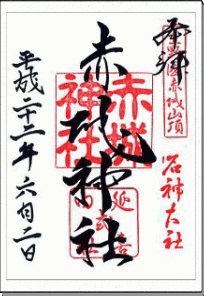 奉拝
赤城山頂
名神大社
赤城神社
赤城
神社
延
平成二十二年六月二日